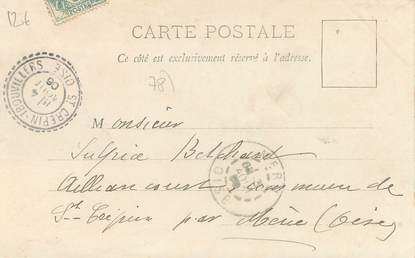 12€
CARTE POSTALE
Ce côté est exclusivement réservé à l'adresse.
78)
ST CRÉPIN-IBOUVILLERS OISE
Monsieur
Sulpice
commune de
St Crépin par Méru (Oise)